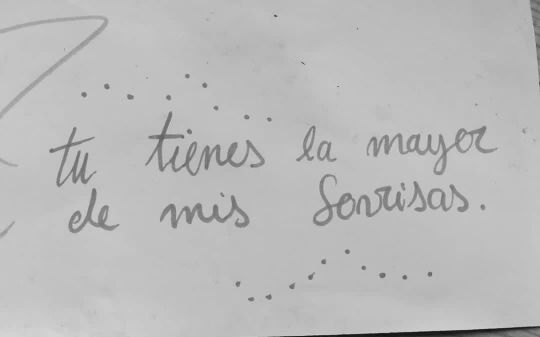 tu tienes la mayor
de mis Sonrisas.